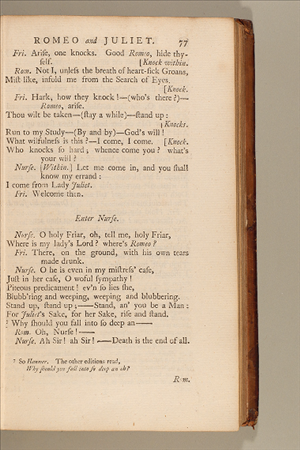 ROMEO and JULIET. 77
Fri. Ariſe, one knocks. Good Romeo, hide thy-
ſelf. [Knock within.
Rom. Not I, unleſs the breath of heart-ſick Groans,
Miſt like, infold me from the Search of Eyes.
[Knock.
Fri. Hark, how they knock!—(who's there?)—
Romeo, ariſe.
Thou wilt be taken—(ſtay a while)—ſtand up:
[Knocks.
Run to my Study—(By and by)—God's will!
What wilfulneſs is this?—I come, I come. [Knock.
Who knocks ſo hard; whence come you? what's
your will?
Nurſe. [Within.] Let me come in, and you ſhall
know my errand:
I come from Lady Juliet.
Fri. Welcome then.
Enter Nurſe.
Nurſe. O holy Friar, oh, tell me, holy Friar,
Where is my lady's Lord? where's Romeo?
Fri. There, on the ground, with his own tears
made drunk.
Nurſe. O he is even in my miſtreſs' caſe,
Juſt in her caſe, O woful ſympathy!
Piteous predicament! ev'n ſo lies ſhe,
Blubb'ring and weeping, weeping and blubbering.
Stand up, ſtand up;—Stand, an' you be a Man:
For Juliet's Sake, for her Sake, riſe and ſtand.
? Why ſhould you fall into ſo deep an—
Rom. Oh, Nurſe!—
Nurſe. Ah Sir! ah Sir!—Death is the end of all.
? So Hanmer. The other editions read,
Why ſhould you fall into ſo deep an oh?
Rom.